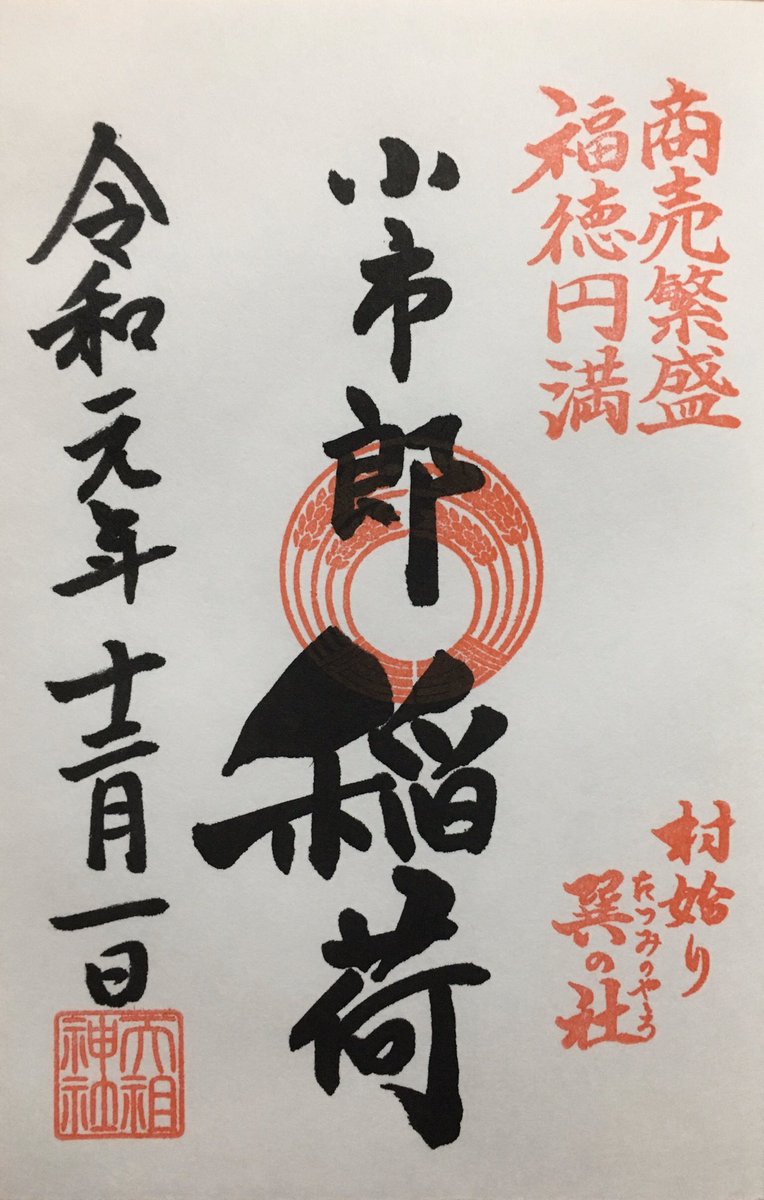 商売繁盛
福徳円満
村始り
たつみのやしろ
巽の社
小市郎稲荷
令和元年十二月一日
天祖神社